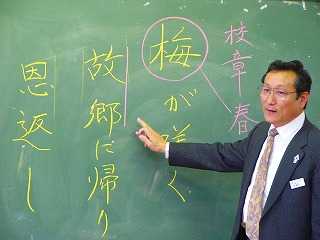 校章 春
梅が咲く
故郷に帰り
恩返し